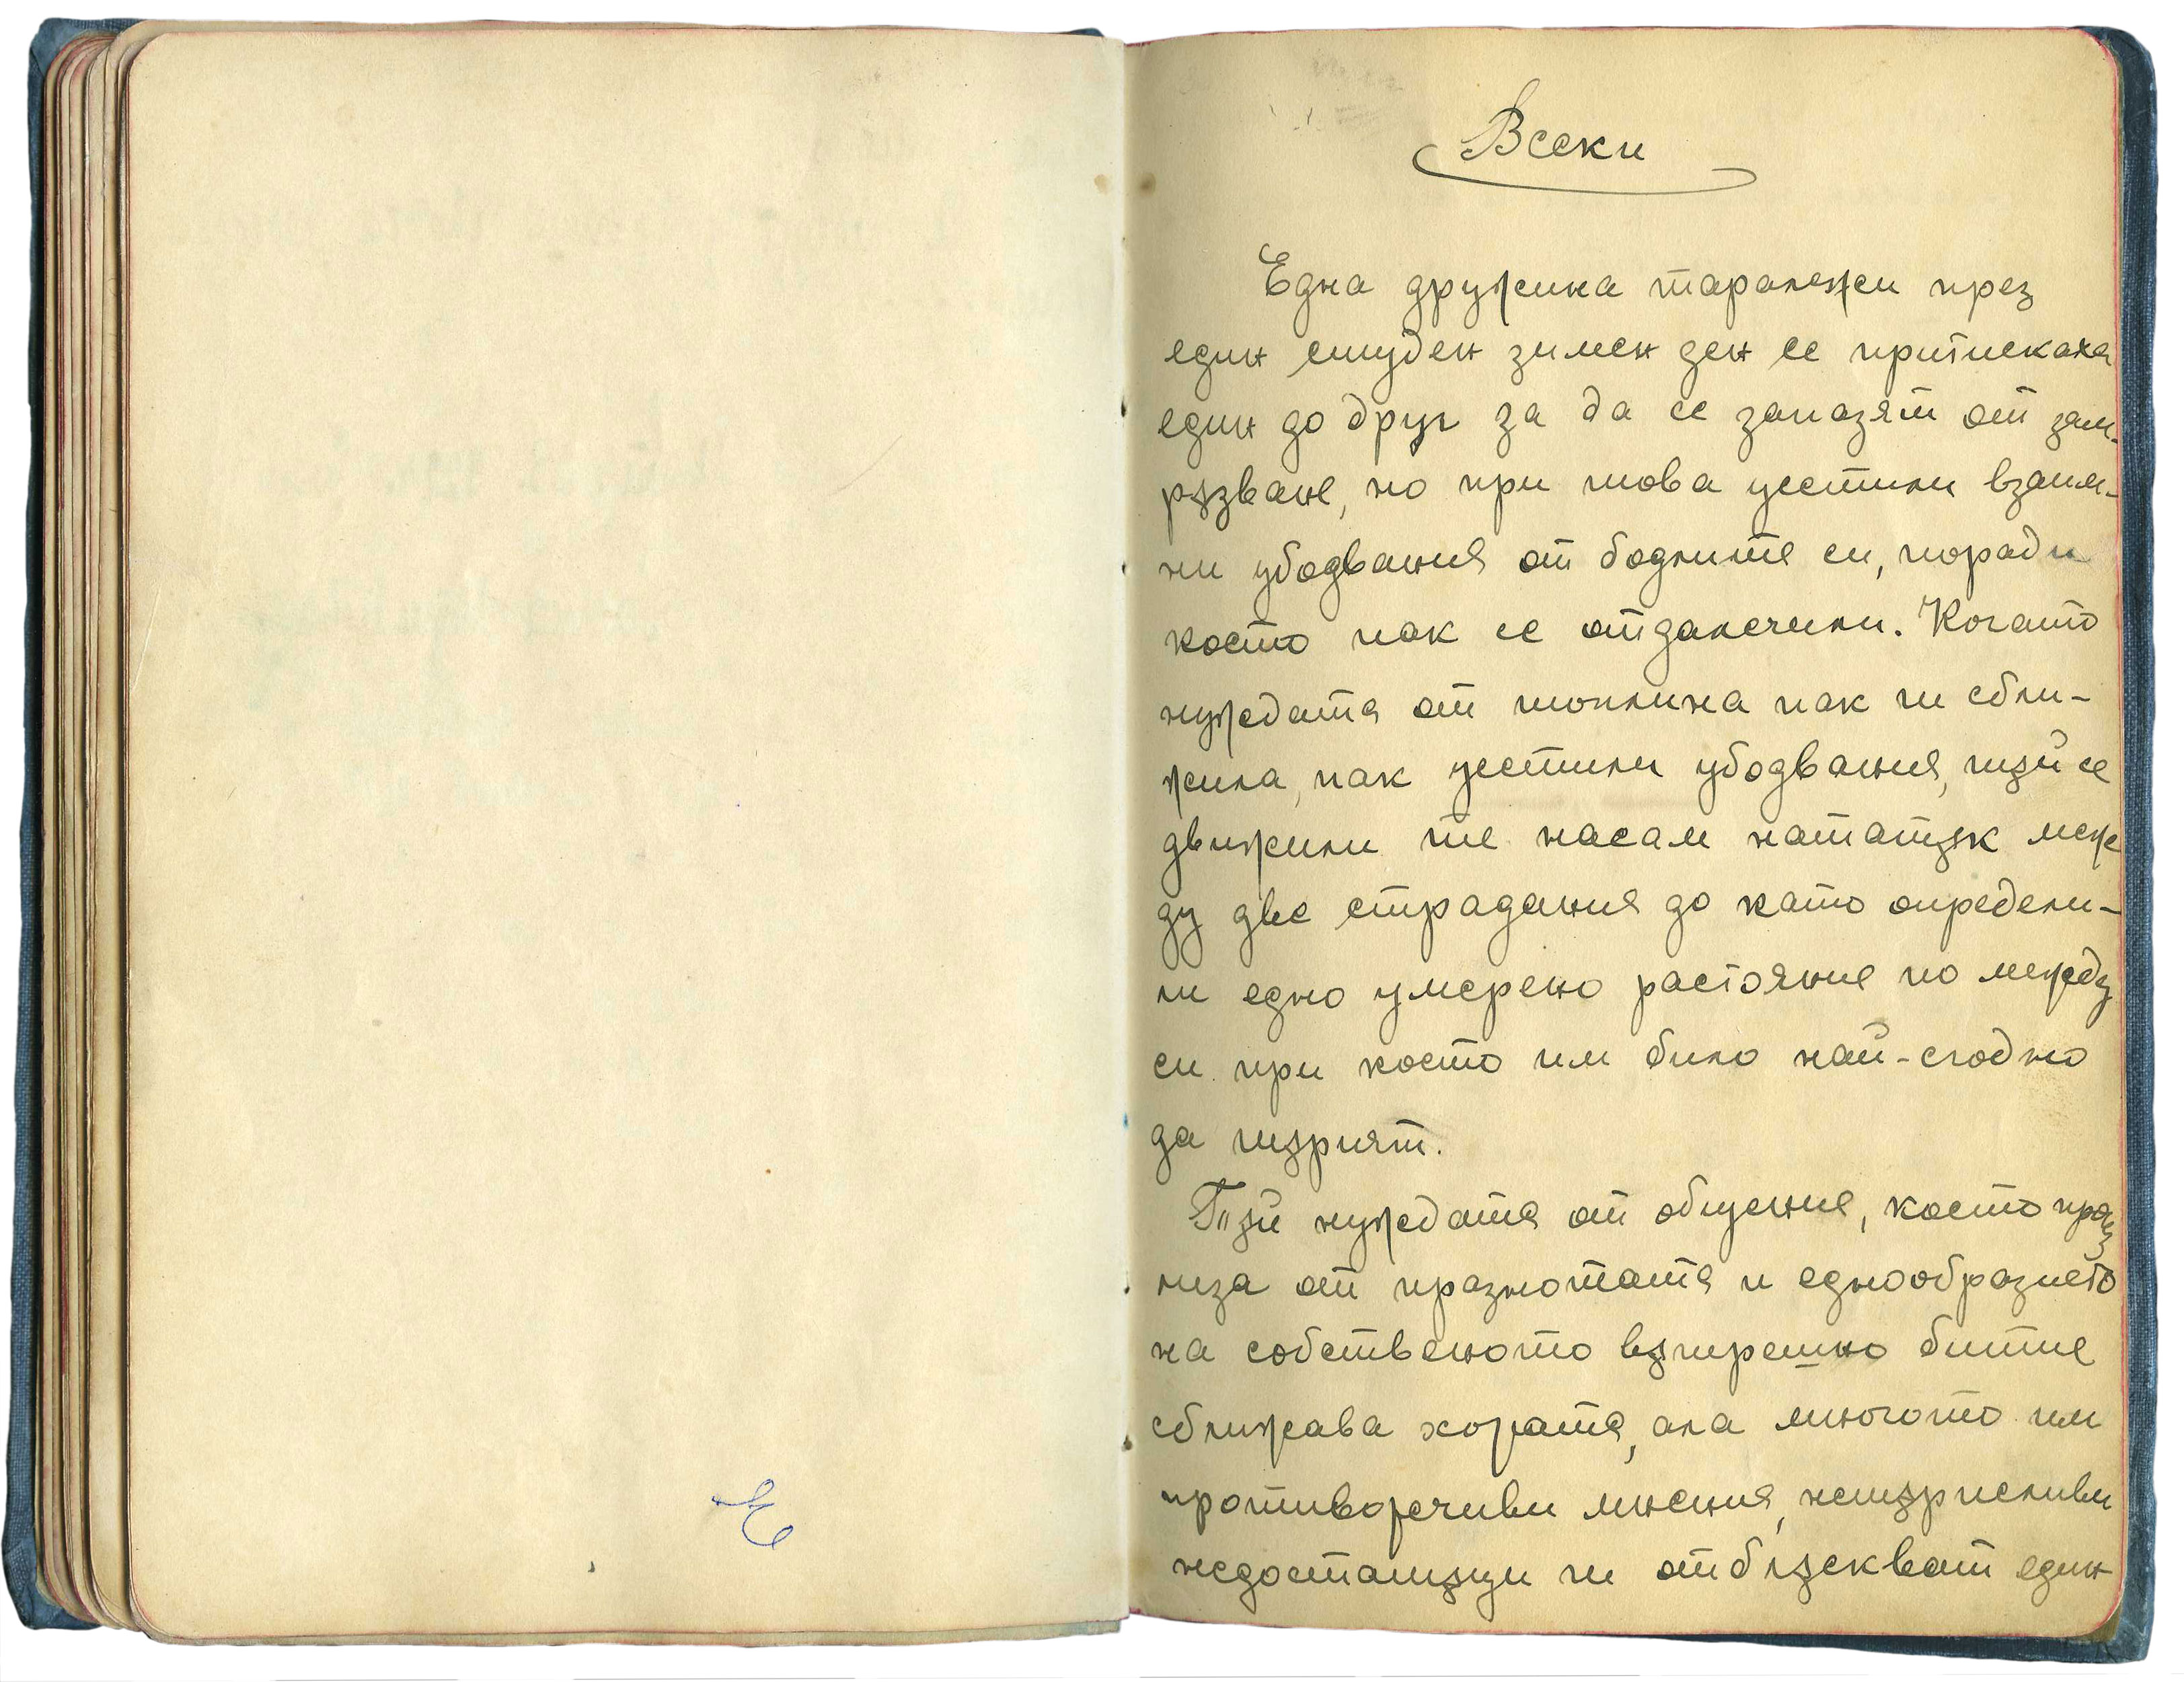 Всеки
Една дружина таралежи през
един студен зимен ден се притискаха
един до друг за да се запазят от зам-
ръзване, но при това усетили взаим-
ни убодвания от бодлите си, поради
което пак се отдалечили. Когато
нуждата от топлина пак ги сбли-
жила, пак усетили убодвания, тъй се
движили те насам нататък меж
ду две страдания до като определи-
ли едно умерено растояние по между
си при което им било най-сгодно
да търпят.
Тъй нуждата от общения, което прои
лиза от празнотата и еднообразието
на собственото вътрешно битие
сближава хората, ала многото им
противоречиви мнения, нетърпеливи
недостатъци ги отблъскват един
Е